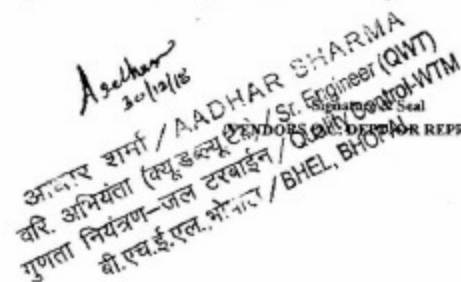 Aadhar
30/12/18
आधार शर्मा / AADHAR SHARMA
वरि. अभियंता (क्यू.डब्ल्यू.टी.) / Sr. Engineer (QWT)
गुणता नियंत्रण-जल टरबाईन / Quality Control-WTM
बी.एच.ई.एल.,भोपाल / BHEL, BHOPAL
Signature & Seal
VENDORS QC. DEPT OR REPR